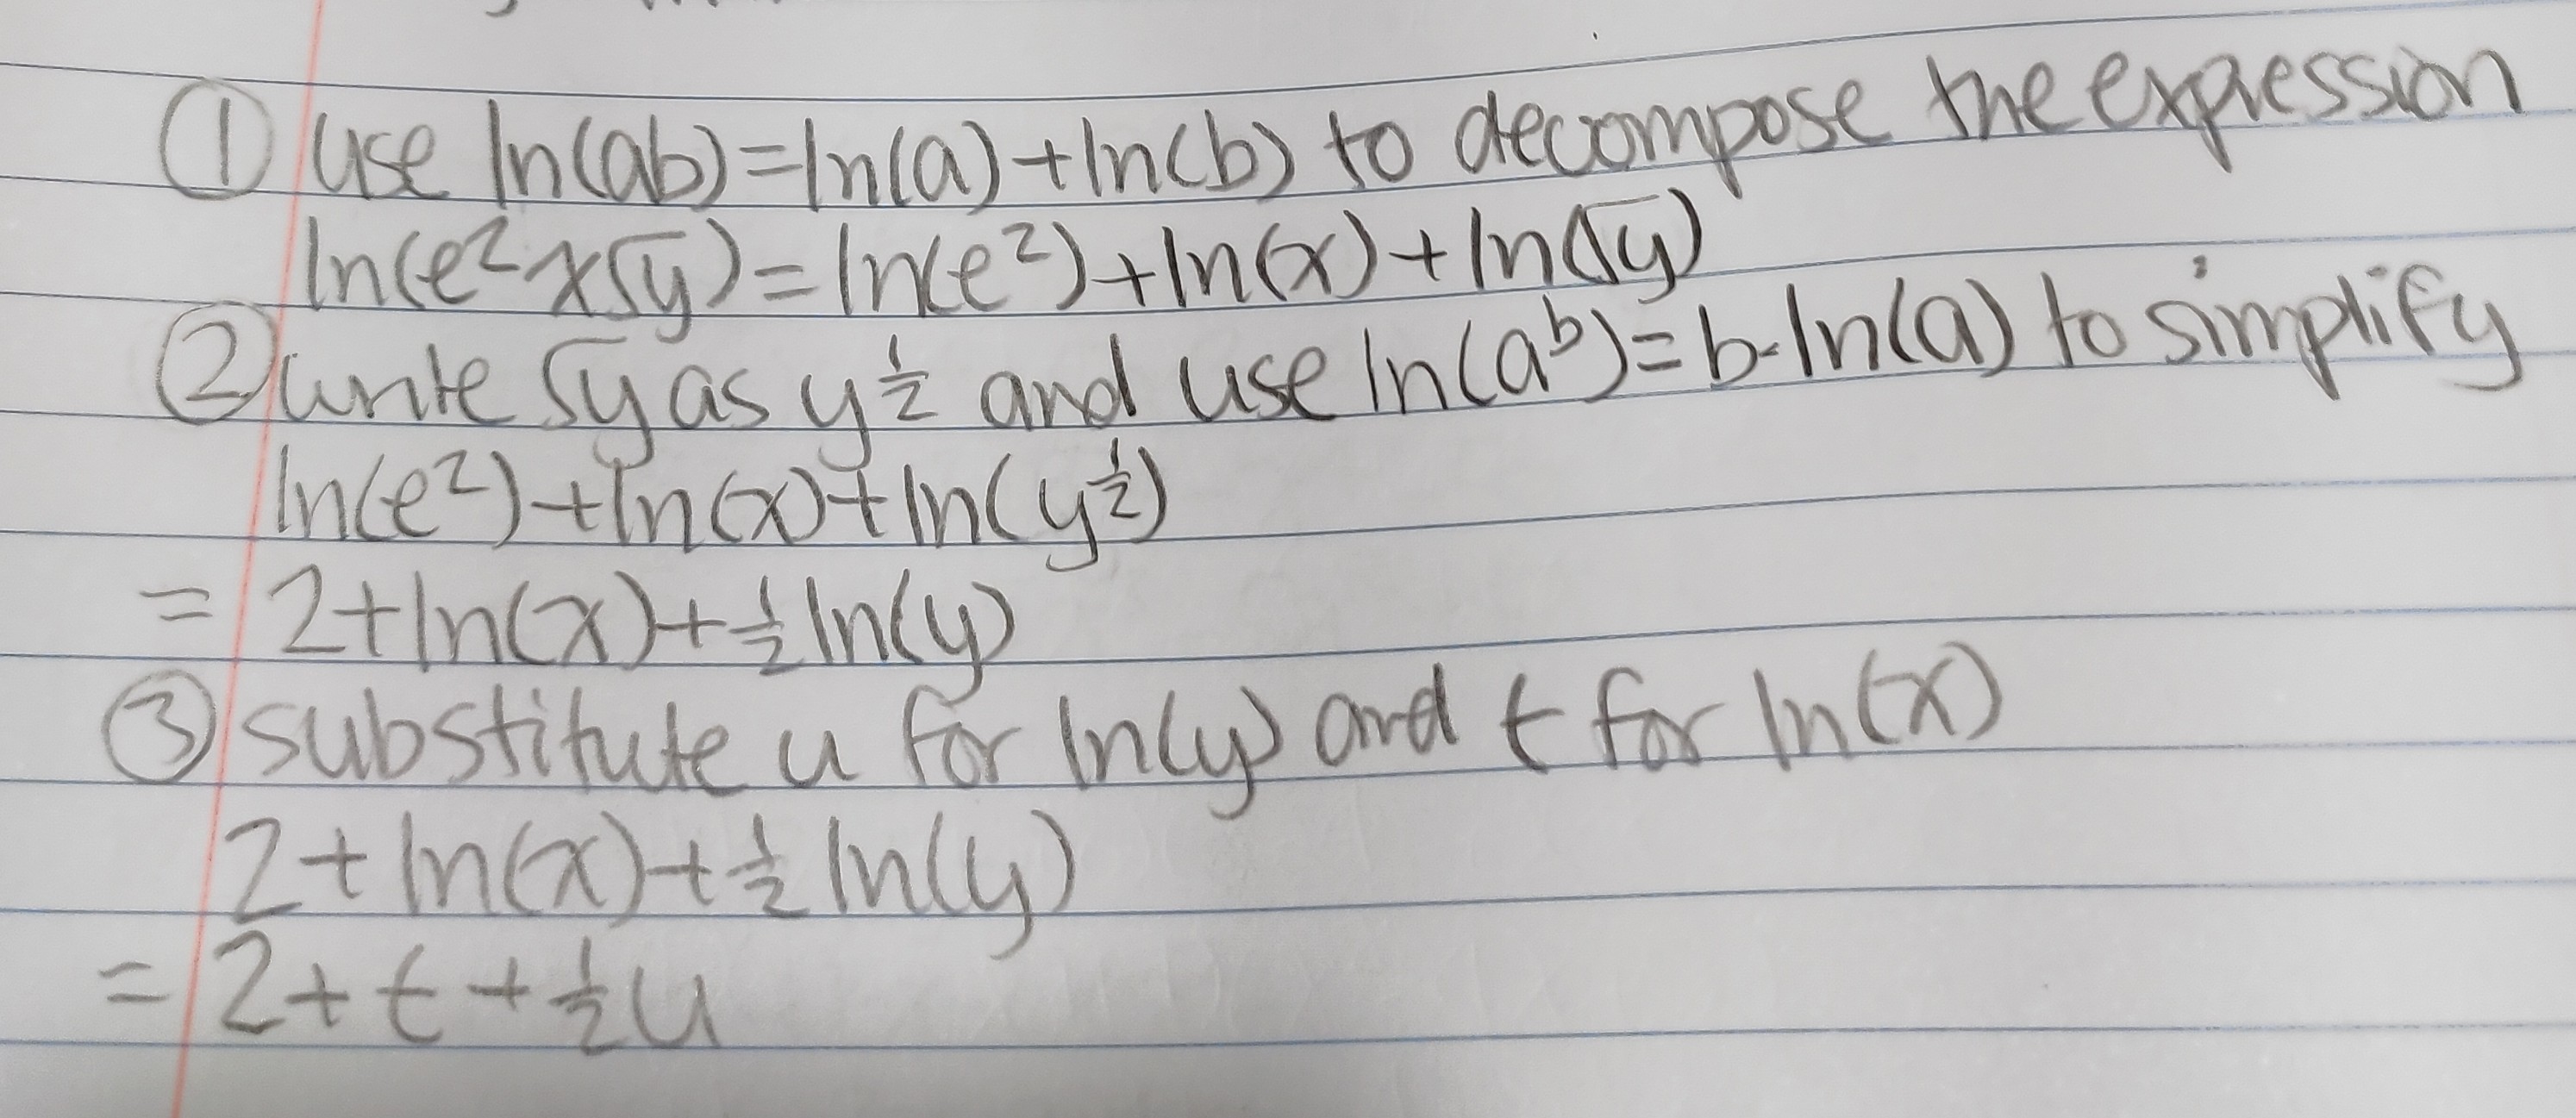 ① use ln(ab)=ln(a)+ln(b) to decompose the expression
ln(e²x√y)=ln(e²)+ln(x)+ln(√y)
② write √y as y^½ and use ln(a^b)=b·ln(a) to simplify
ln(e²)+ln(x)+ln(y^½)
= 2+ln(x)+½ln(y)
③ substitute u for ln(y) and t for ln(x)
2+ln(x)+½ln(y)
= 2+t+½u